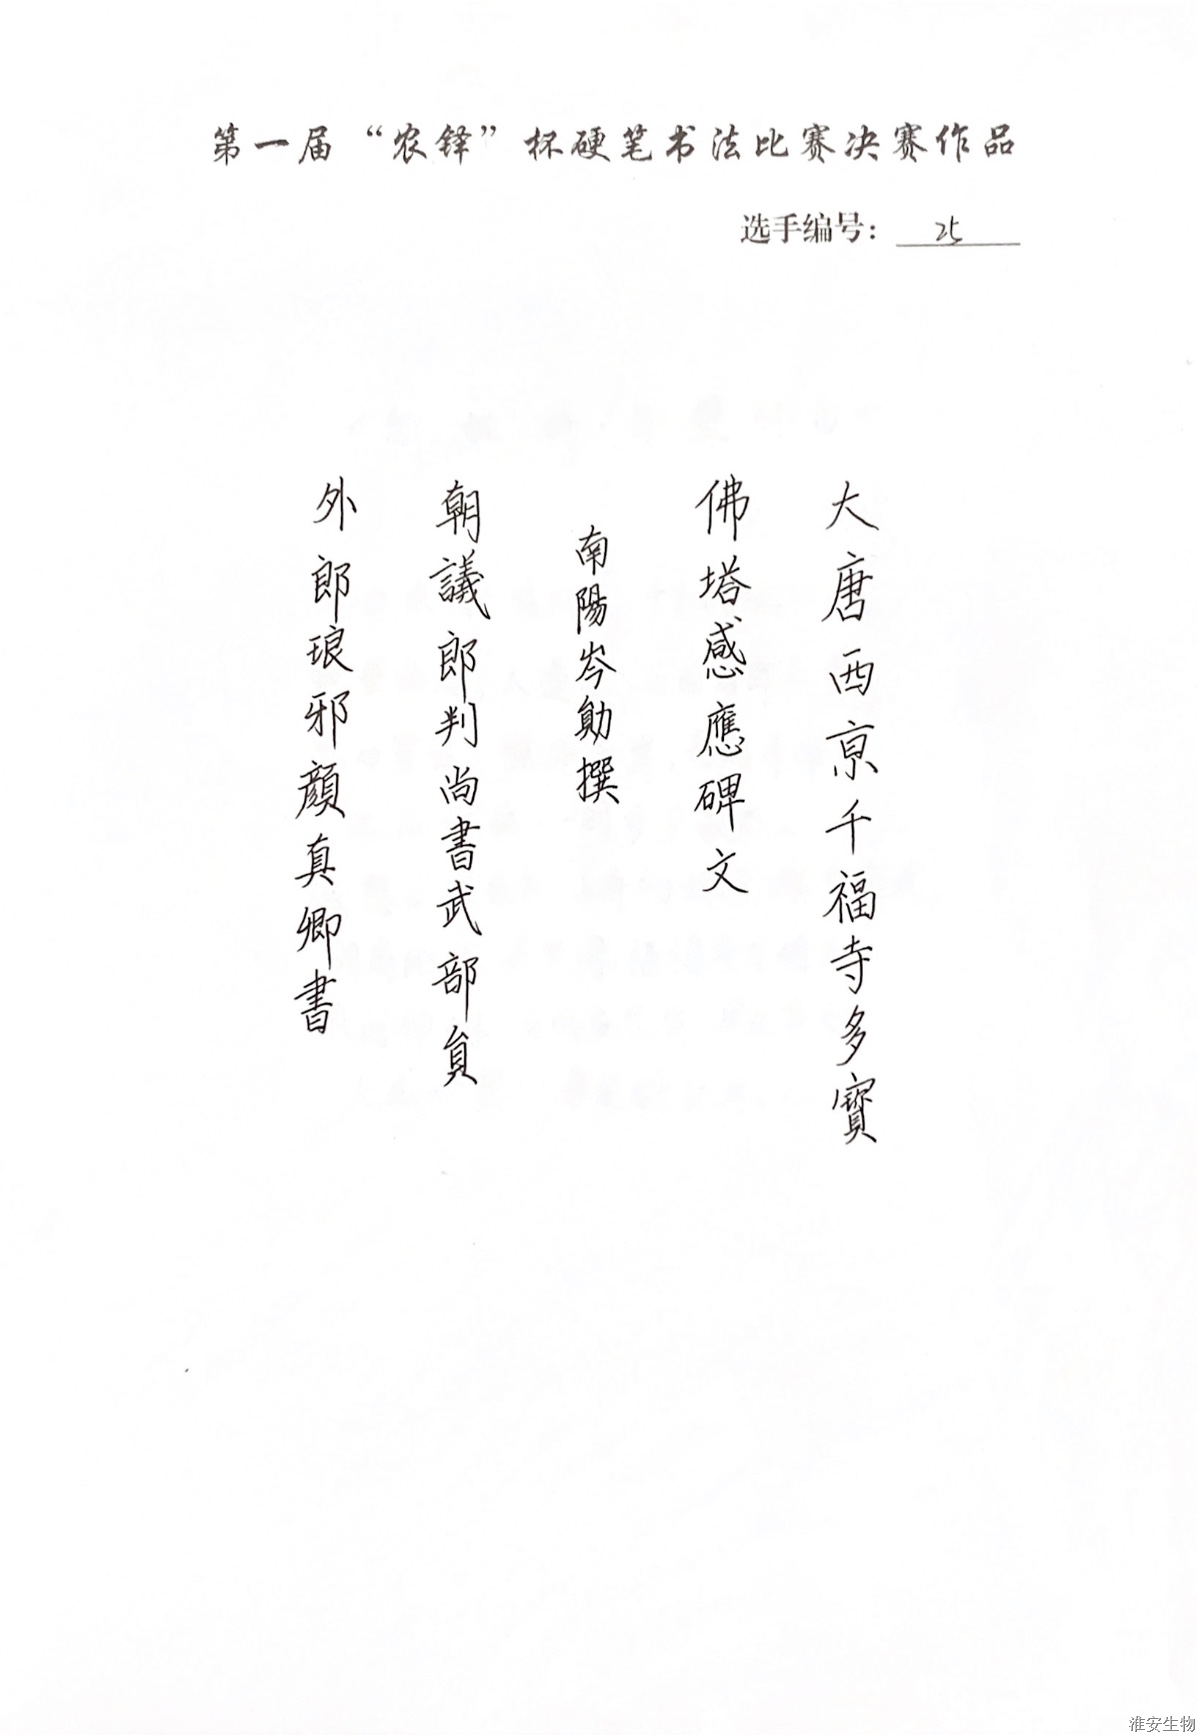 第一届“农铎”杯硬笔书法比赛决赛作品
选手编号：25
大唐西京千福寺多寶
佛塔感應碑文
南陽岑勛撰
朝議郎判尚書武部員
外郎琅邪顏真卿書
淮安生物